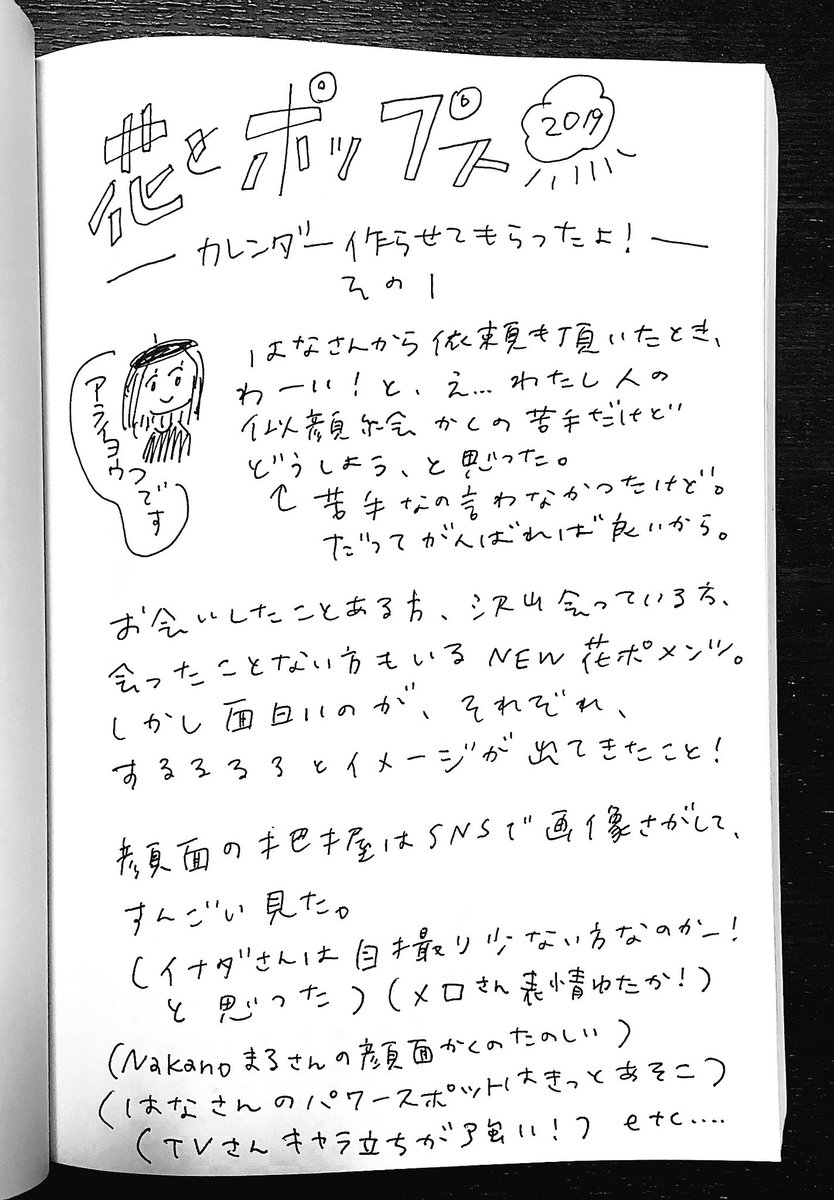 花とポップス
2019
カレンダー作らせてもらったよ!
その1
アライヨウコです
はなさんから依頼を頂いたとき、
わーい!と、え…わたし人の
似顔絵かくの苦手だけど
どうしよう、と思った。
↑苦手なの言わなかったけど。
だってがんばれば良いから。
お会いしたことある方、沢山会っている方、
会ったことない方もいるNEW花ポメンツ。
しかし面白いのが、それぞれ、
するるるるとイメージが出てきたこと!
顔面の把握はSNSで画像さがして、
すんごい見た。
(イナダさんは自撮り少ない方なのかー!
と思った)(メロさん表情ゆたか!)
(Nakanoまるさんの顔面かくのたのしい)
(はなさんのパワースポットはきっとあそこ)
(TVさんキャラ立ちが強い!) etc....